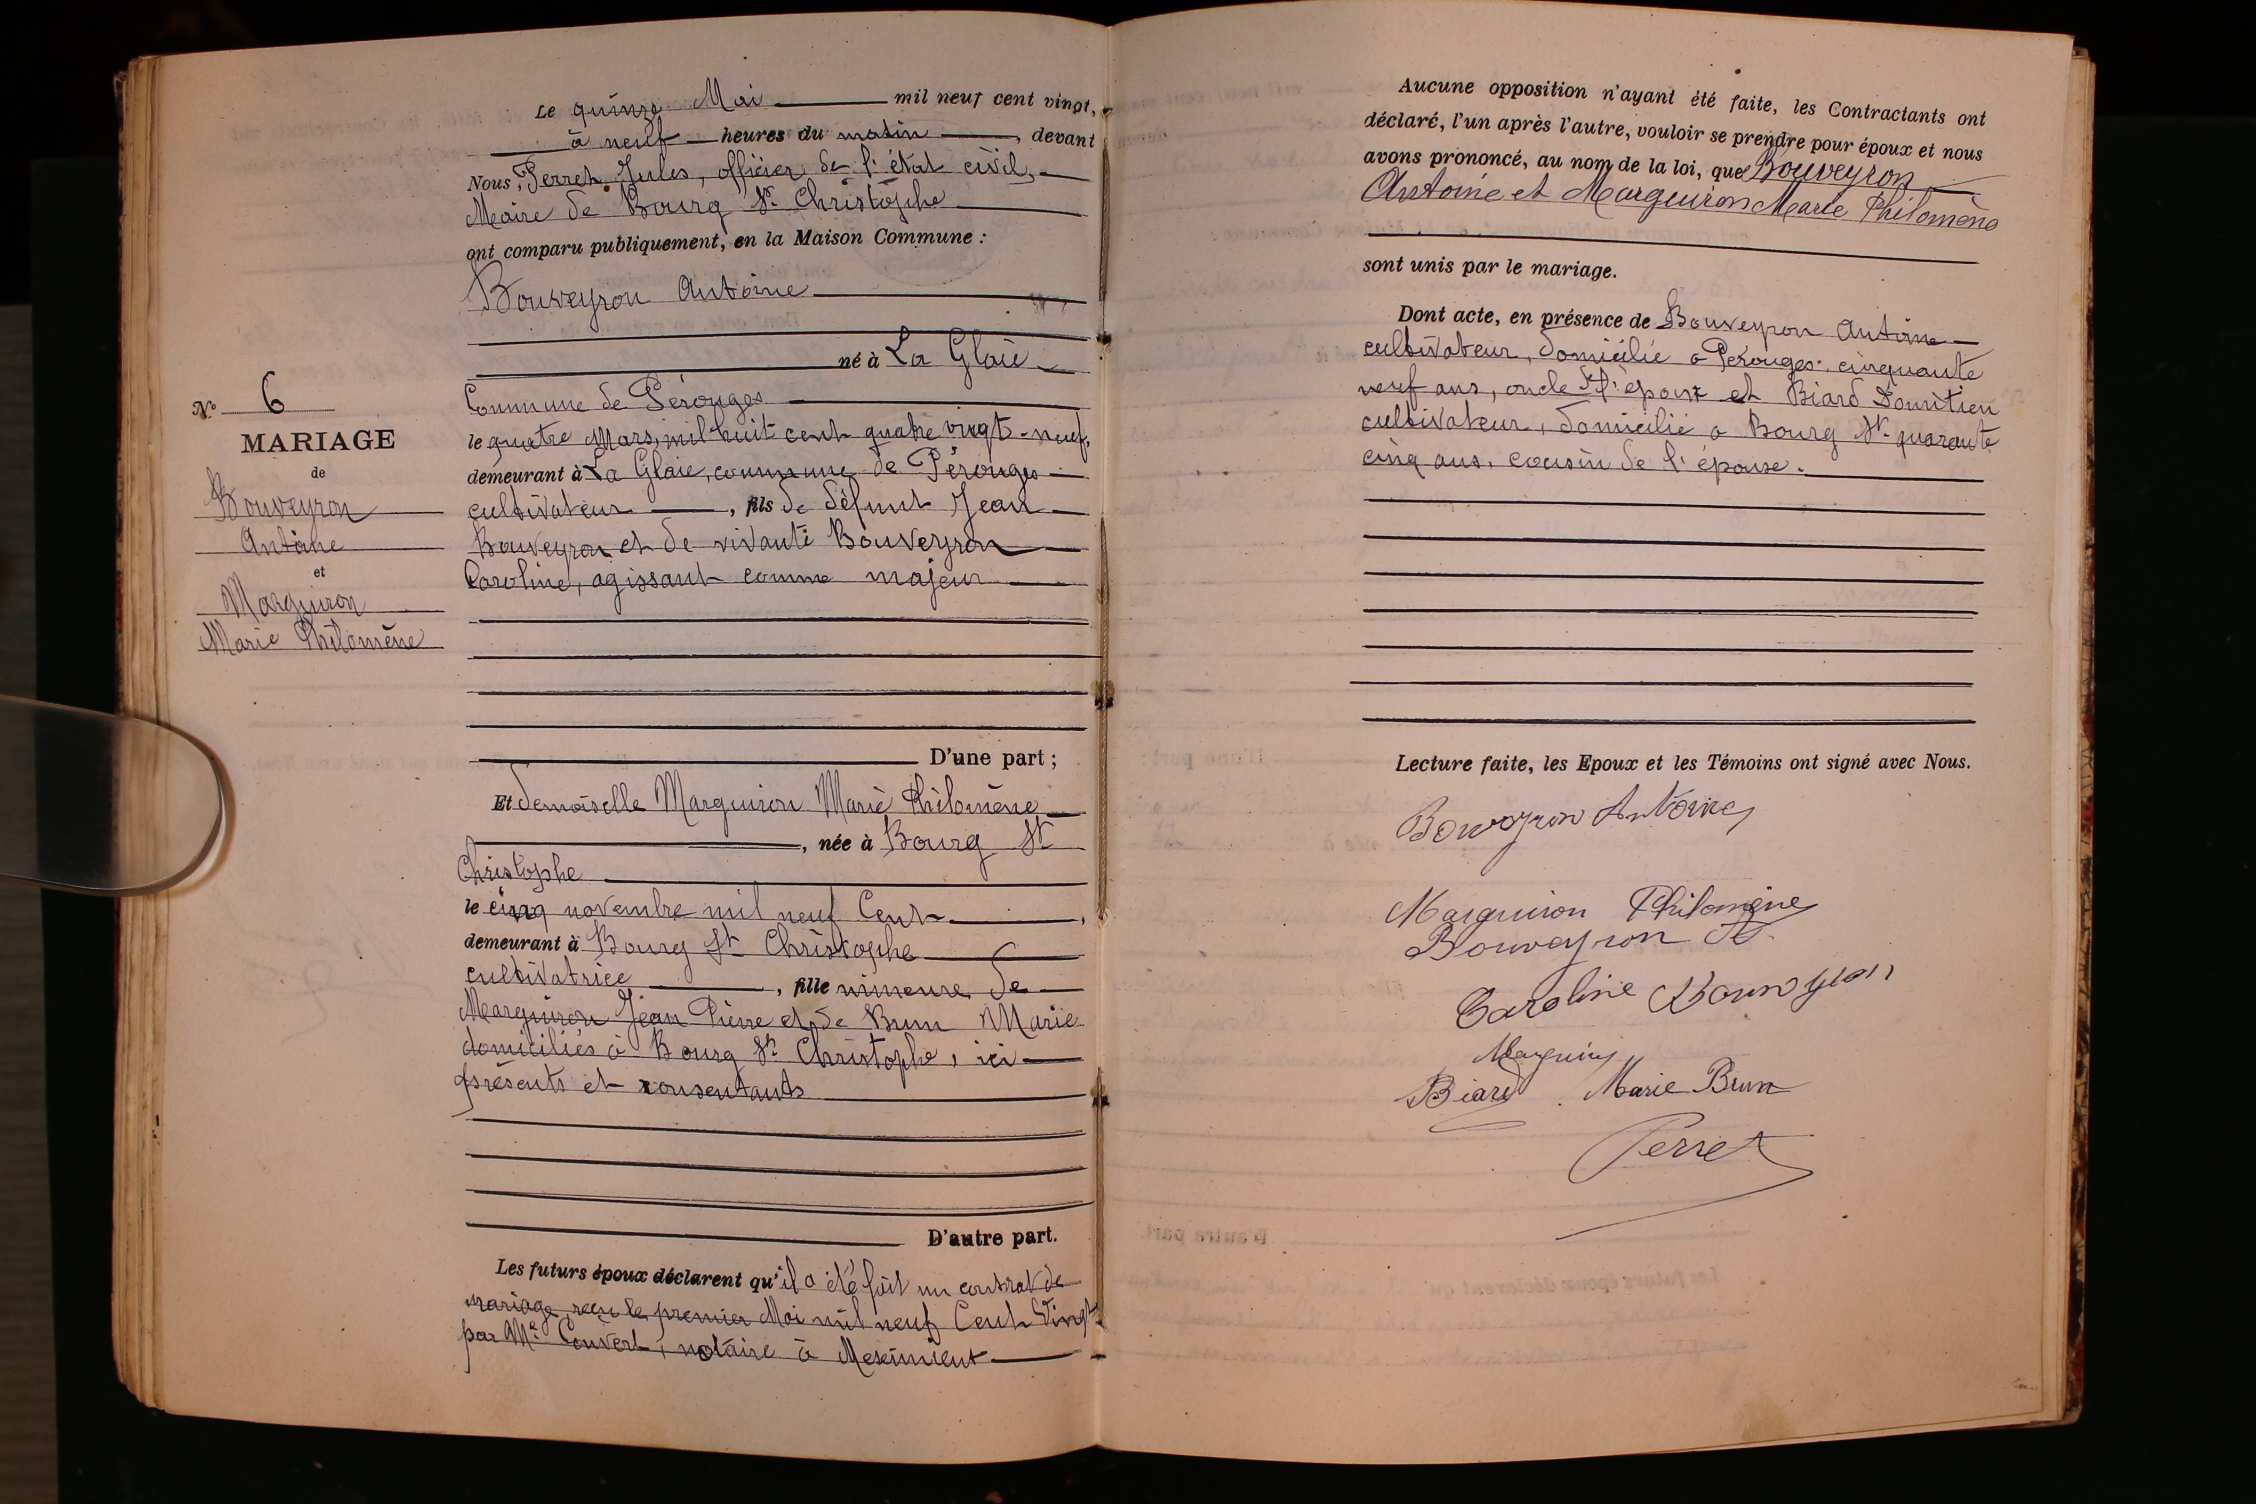 Le quinze Mai mil neuf cent vingt,
à neuf heures du matin, devant
Nous, Perret Jules, officier de l'état civil,
Maire de Bourg St Christophe
ont comparu publiquement, en la Maison Commune :
Bouveyron Antoine
né à La Glaie
Commune de Pérouges
le quatre Mars, mil huit cent quatre vingt-neuf,
demeurant à La Glaie, commune de Pérouges
cultivateur, fils de défunt Jean
Bouveyron et de vivante Bouveyron
Caroline, agissant comme majeur
D'une part ;
No 6
MARIAGE
de
Bouveyron
Antoine
et
Marguiron
Marie Philomène
Et demoiselle Marguiron Marie Philomène
, née à Bourg St
Christophe
le cinq novembre mil neuf Cent,
demeurant à Bourg St Christophe
cultivatrice, fille mineure de
Marguiron Jean Pierre et de Brun Marie
domiciliés à Bourg St Christophe, ici
présents et consentants
D'autre part.
Les futurs époux déclarent qu'il a été fait un contrat de
mariage reçu le premier Mai mil neuf Cent Vingt
par Me Convert, notaire à Meximieux
Aucune opposition n'ayant été faite, les Contractants ont
déclaré, l'un après l'autre, vouloir se prendre pour époux et nous
avons prononcé, au nom de la loi, que Bouveyron
Antoine et Marguiron Marie Philomène
sont unis par le mariage.
Dont acte, en présence de Bouveyron Antoine
cultivateur, domicilié à Pérouges, cinquante
neuf ans, oncle de l'époux et Biard
cultivateur, domicilié à Bourg St quarante
cinq ans, cousin de l'épouse.
Lecture faite, les Epoux et les Témoins ont signé avec Nous.
Bouveyron Antoine
Marguiron Philomène
Bouveyron A.
Caroline Bouveyron
Marguiron
Biard Marie Brun
Perret